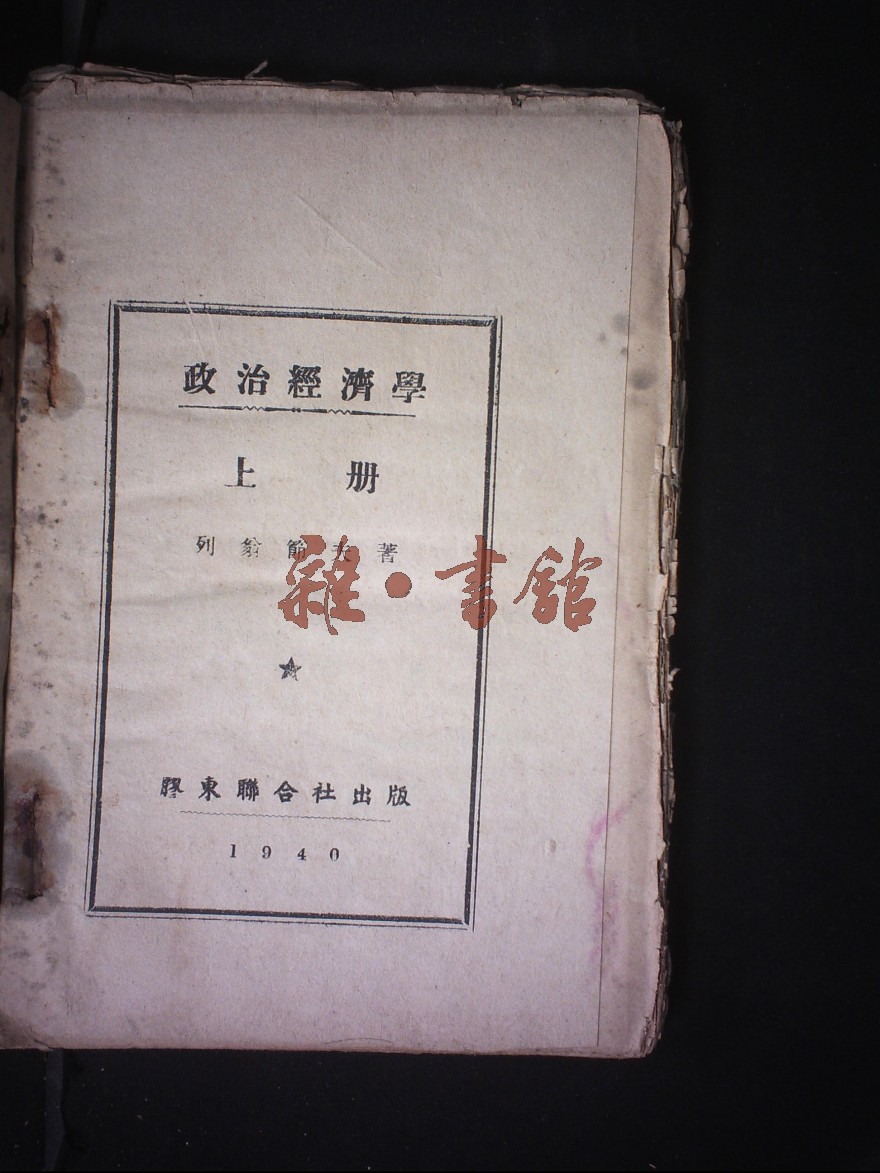 政治經濟學
上册
列翁節夫著
雜·書館
膠東聯合社出版
1940